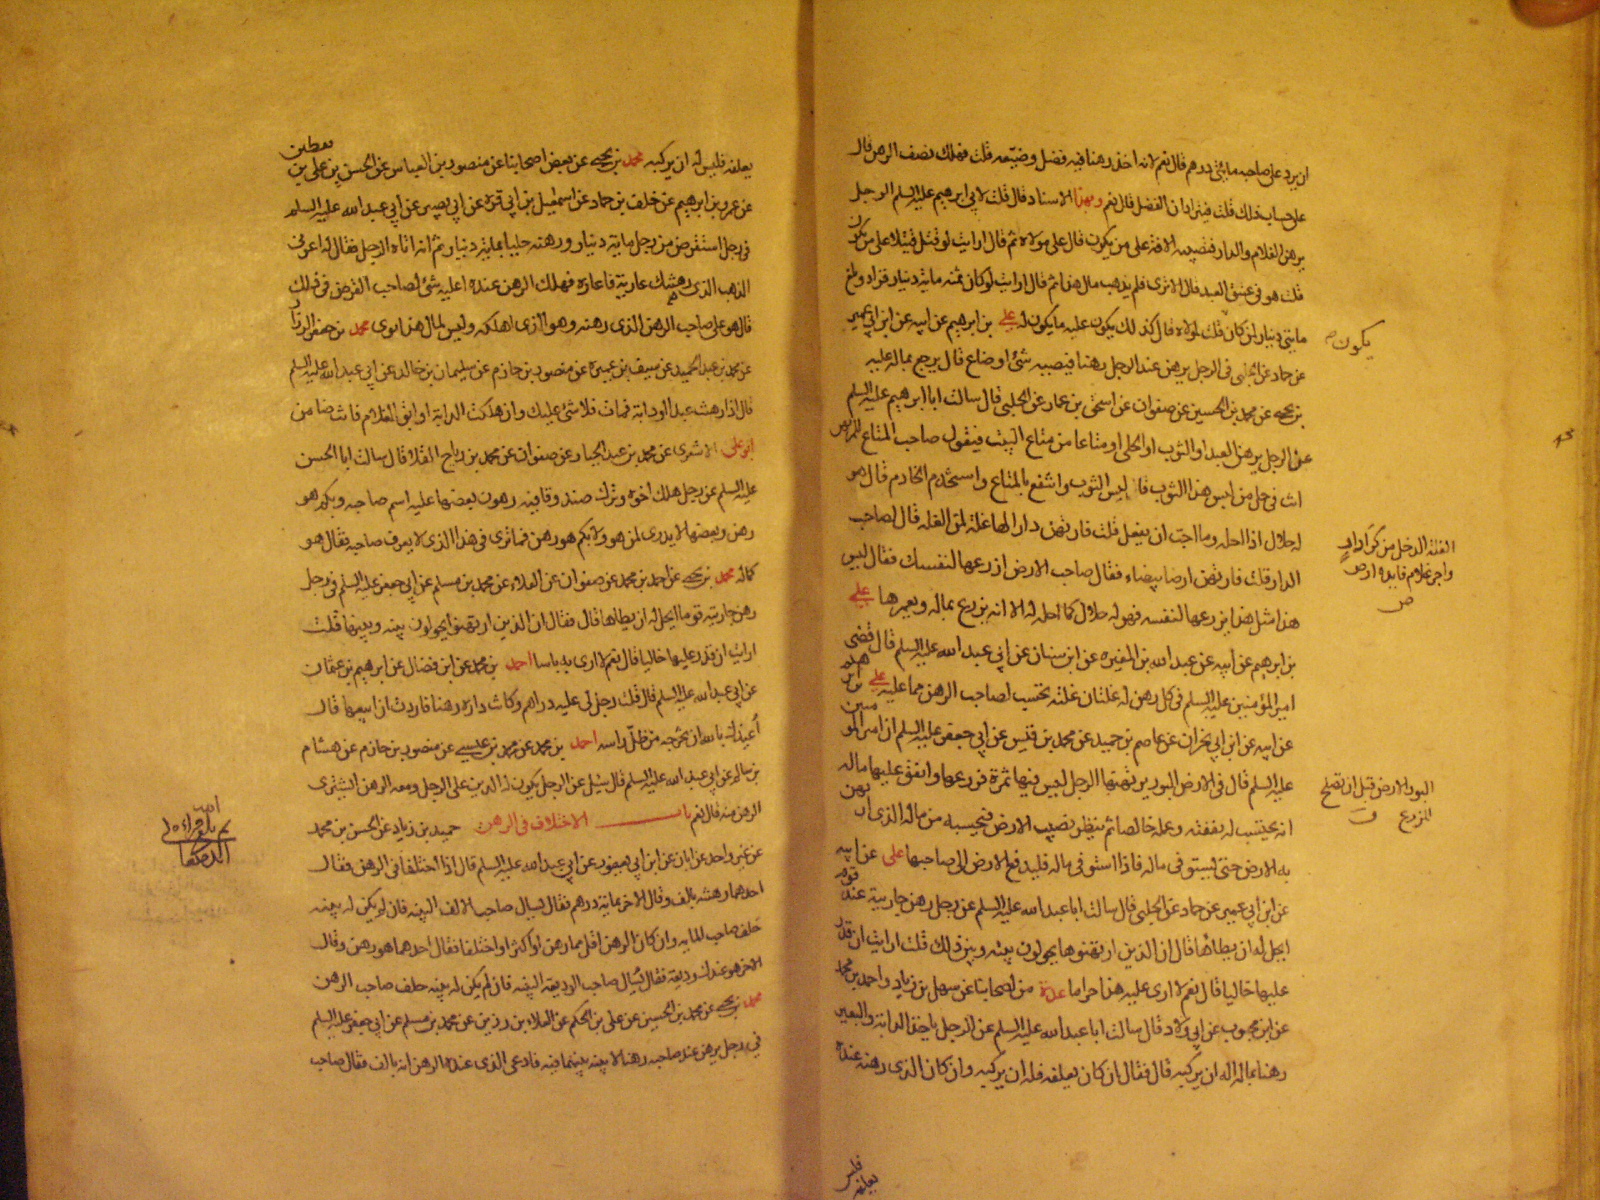 ان يرد على صاحبه مائتى درهم قال نعم لانه اخذ رهنا فيه فضل وضيعه قلت فهلك نصف الرهن قال
على حساب ذلك قلت فيترادان الفضل قال نعم وبهذا الاسناد قال قلت لابى ابرهيم عليه السلم الرجل
يرهن الغلام والدار فتصيبه الافة على من يكون قال على مولاه ثم قال ارايت لو قتل قتيلا على من يكون
قلت هو فى عنق العبد قال الا ترى فلم يذهب مال هذا ثم قال ارايت لو كان ثمنه مائة دينار فزاد وبلغ
مايتى دينار لمن كان قلت لمولاه قال كذلك يكون عليه ما يكون له على بن ابرهيم عن ابيه عن ابن ابى عمير
عن حماد عن الحلبى فى الرجل يرهن عند الرجل رهنا فيصيبه شئ او ضاع قال يرجع بماله عليه
بن يحيى عن محمد بن الحسين عن صفوان عن اسحق بن عمار عن الحلبى قال سالت ابا ابرهيم عليه السلم
عن الرجل يرهن العبد او الثوب او الحلى او متاعا من متاع البيت فيقول صاحب المتاع للمرتهن
انت فى حل من لبس هذا الثوب فالبس الثوب وانتفع بالمتاع واستخدم الخادم قال هو
له حلال اذا احله وما احب ان يفعل قلت فارتهن دارا لها غلة لمن الغله قال لصاحب
الدار قلت فارتهن ارضا بيضاء فقال صاحب الارض ازرعها لنفسك فقال ليس
هذا مثل هذا يزرعها لنفسه فهو له حلال كما احله له الا انه يزرع بماله ويعمرها على
بن ابرهيم عن ابيه عن عبد الله بن المغيره عن ابن سنان عن ابى عبد الله عليه السلم قال قضى
امير المؤمنين عليه السلم فى كل رهن له غلة ان غلته تحتسب لصاحب الرهن مما عليه على بن ابرهيم
عن ابيه عن ابن ابى نجران عن عاصم بن حميد عن محمد بن قيس عن ابى جعفر عليه السلم ان امير المومنين
عليه السلم قال فى الارض البور يرتهنها الرجل ليس فيها ثمرة فزرعها وانفق عليها ماله
انه يحتسب له نفقته وعمله خالصا ثم ينظر نصيب الارض فيحسبه من ماله الذى ارتهن
به الارض حتى يستوفى ماله فاذا استوفى ماله فليدفع الارض الى صاحبها على عن ابيه
عن ابن ابى عمير عن حماد عن الحلبى قال سالت ابا عبد الله عليه السلم عن رجل رهن جاريته عند قوم
ايحل له ان يطاها قال ان الذين ارتهنوها يحولون بينه وبين ذلك قلت ارايت ان قدر
عليها خاليا قال نعم لا ارى عليه هذا حراما عدة من اصحابنا عن سهل بن زياد واحمد بن محمد
عن ابن محبوب عن ابى ولاد قال سالت ابا عبد الله عليه السلم عن الرجل ياخذ الدابة والبعير
رهنا بماله اله ان يركبه قال فقال ان كان يعلفه فله ان يركبه وان كان الذى رهنه عنده
يكون
الغلة الدخل من كرا دار او
واجر غلام فايده ارض
ص
البور الارض قبل ان تصلح
للزرع ق
فليس
يعلفه
يعلفه فليس له ان يركبه محمد بن يحيى عن بعض اصحابنا عن منصور بن العباس عن الحسن بن على بن يقطين
عن عمرو بن ابرهيم عن خلف بن حماد عن اسمعيل بن ابى قرة عن ابى بصير عن ابى عبد الله عليه السلم
فى رجل استقرض من رجل ماية دينار ورهنه حليا بماية دينار ثم انه اتاه الرجل فقال له اعرنى
الذهب الذى رهنتك عارية فاعاره فهلك الرهن عنده اعليه شئ لصاحب القرض فى ذلك
قال هو على صاحب الرهن الذى رهنه وهو الذى اهلكه وليس لمال هذا توى محمد بن جعفر الرزاز
عن محمد بن عبد الحميد عن سيف بن عميرة عن منصور بن حازم عن سليمان بن خالد عن ابى عبد الله عليه السلم
قال اذا رهنت عبدا او دابة فمات فلا شئ عليك وان هلكت الدابة او ابق الغلام فانت ضامن
ابو على الاشعرى عن محمد بن عبد الجبار عن صفوان عن محمد بن رياح القلا قال سالت ابا الحسن
عليه السلم عن رجل هلك اخوه وترك صندوقا فيه رهون بعضها عليه اسم صاحبه وبكم هو
رهن وبعضها لا يدرى لمن هو ولا بكم هو رهن فما ترى فى هذا الذى لا يعرف صاحبه فقال هو
كماله محمد بن يحيى عن احمد بن محمد عن صفوان عن العلاء عن محمد بن مسلم عن ابى جعفر عليه السلم فى رجل
رهن جاريته قوما ايحل له ان يطاها قال فقال ان الذين ارتهنوا يحولون بينه وبينها قلت
ارايت ان قدر عليها خاليا قال نعم لا ارى به باسا احمد بن محمد عن ابن فضال عن ابرهيم بن عثمان
عن ابى عبد الله عليه السلم قال قلت رجل لى عليه دراهم وكانت داره رهنا فاردت ان ابيعها قال
اعيذك بالله ان تخرجه من ظل راسه احمد بن محمد عن محمد بن عيسى عن منصور بن حازم عن هشام
بن سالم عن ابى عبد الله عليه السلم قال سئل عن الرجل يكون له الدين على الرجل ومعه الرهن ايشترى
الرهن منه قال نعم باب الاختلاف فى الرهن حميد بن زياد عن الحسن بن محمد
عن غير واحد عن ابان عن ابن ابى يعفور عن ابى عبد الله عليه السلم قال اذا اختلفا فى الرهن فقال
احدهما رهنته بالف وقال الاخر بماية درهم فقال يسال صاحب الالف البينه فان لم يكن له بينه
حلف صاحب المايه وان كان الرهن اقل مما رهن او اكثر او اختلفا فقال احدهما هو رهن وقال
الاخر هو عندك وديعة فقال يسال صاحب الوديعة البينه فان لم يكن له بينه حلف صاحب الرهن
محمد بن يحيى عن محمد بن الحسين عن على بن الحكم عن العلاء بن رزين عن محمد بن مسلم عن ابى جعفر عليه السلم
فى رجل يرهن عند صاحبه رهنا لا بينه بينهما فيه فادعى الذى عنده الرهن انه بالف فقال صاحب